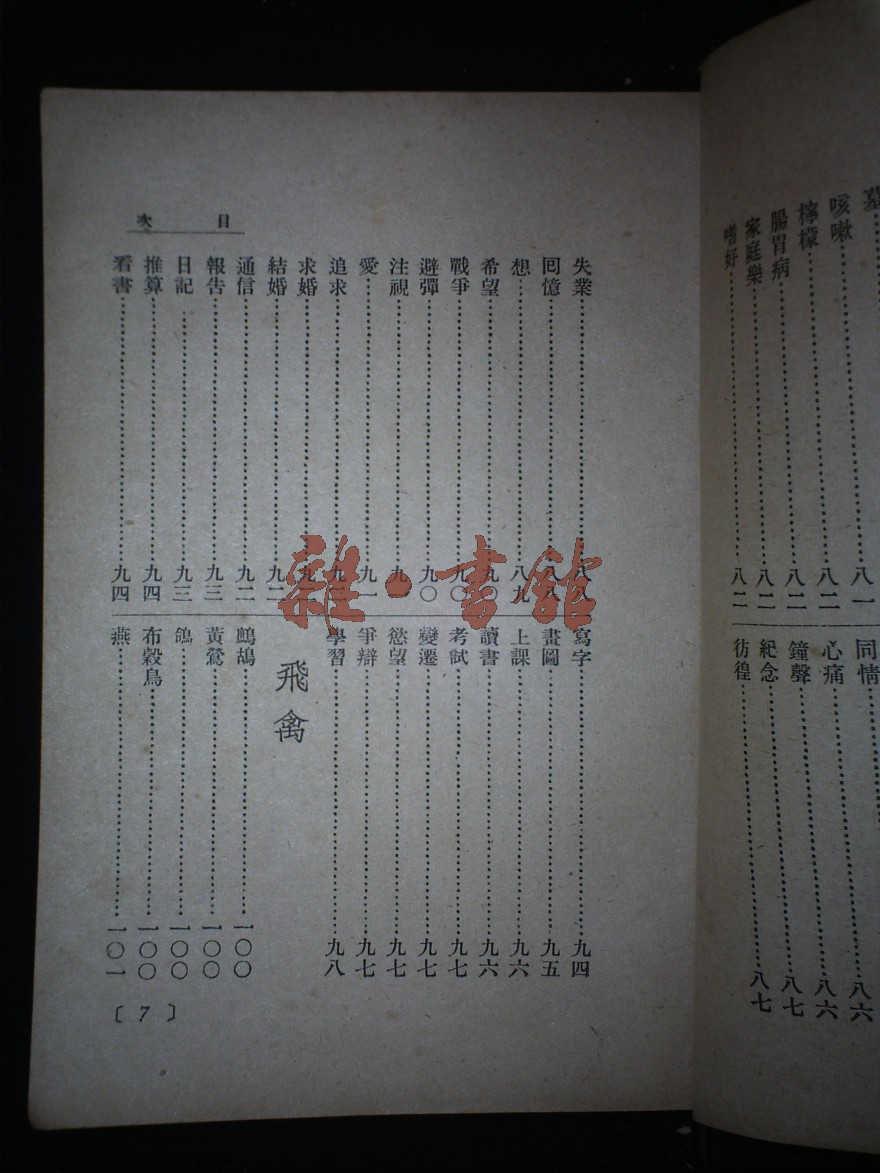 墓……八一
咳嗽……八二
檸檬……八二
腸胃病……八二
家庭樂……八二
嗜好……
同情……八六
心痛……八六
鐘聲……八七
紀念……八七
彷徨……
目次
失業……八八
回憶……八八
想……八九
希望……九〇
戰爭……九〇
避彈……九〇
注視……九
愛……九一
追求……九
求婚……九
結婚……九二
通信……九二
報告……九三
日記……九三
推算……九四
看書……九四
寫字……九四
畫圖……九五
上課……九六
讀書……九六
考試……九七
變遷……九七
慾望……九七
爭辯……九七
學習……九八
飛禽
鷓鴣……一〇〇
黃鶯……一〇〇
鴿……一〇〇
布穀鳥……一〇〇
燕……一〇一
〔7〕
雜·書館